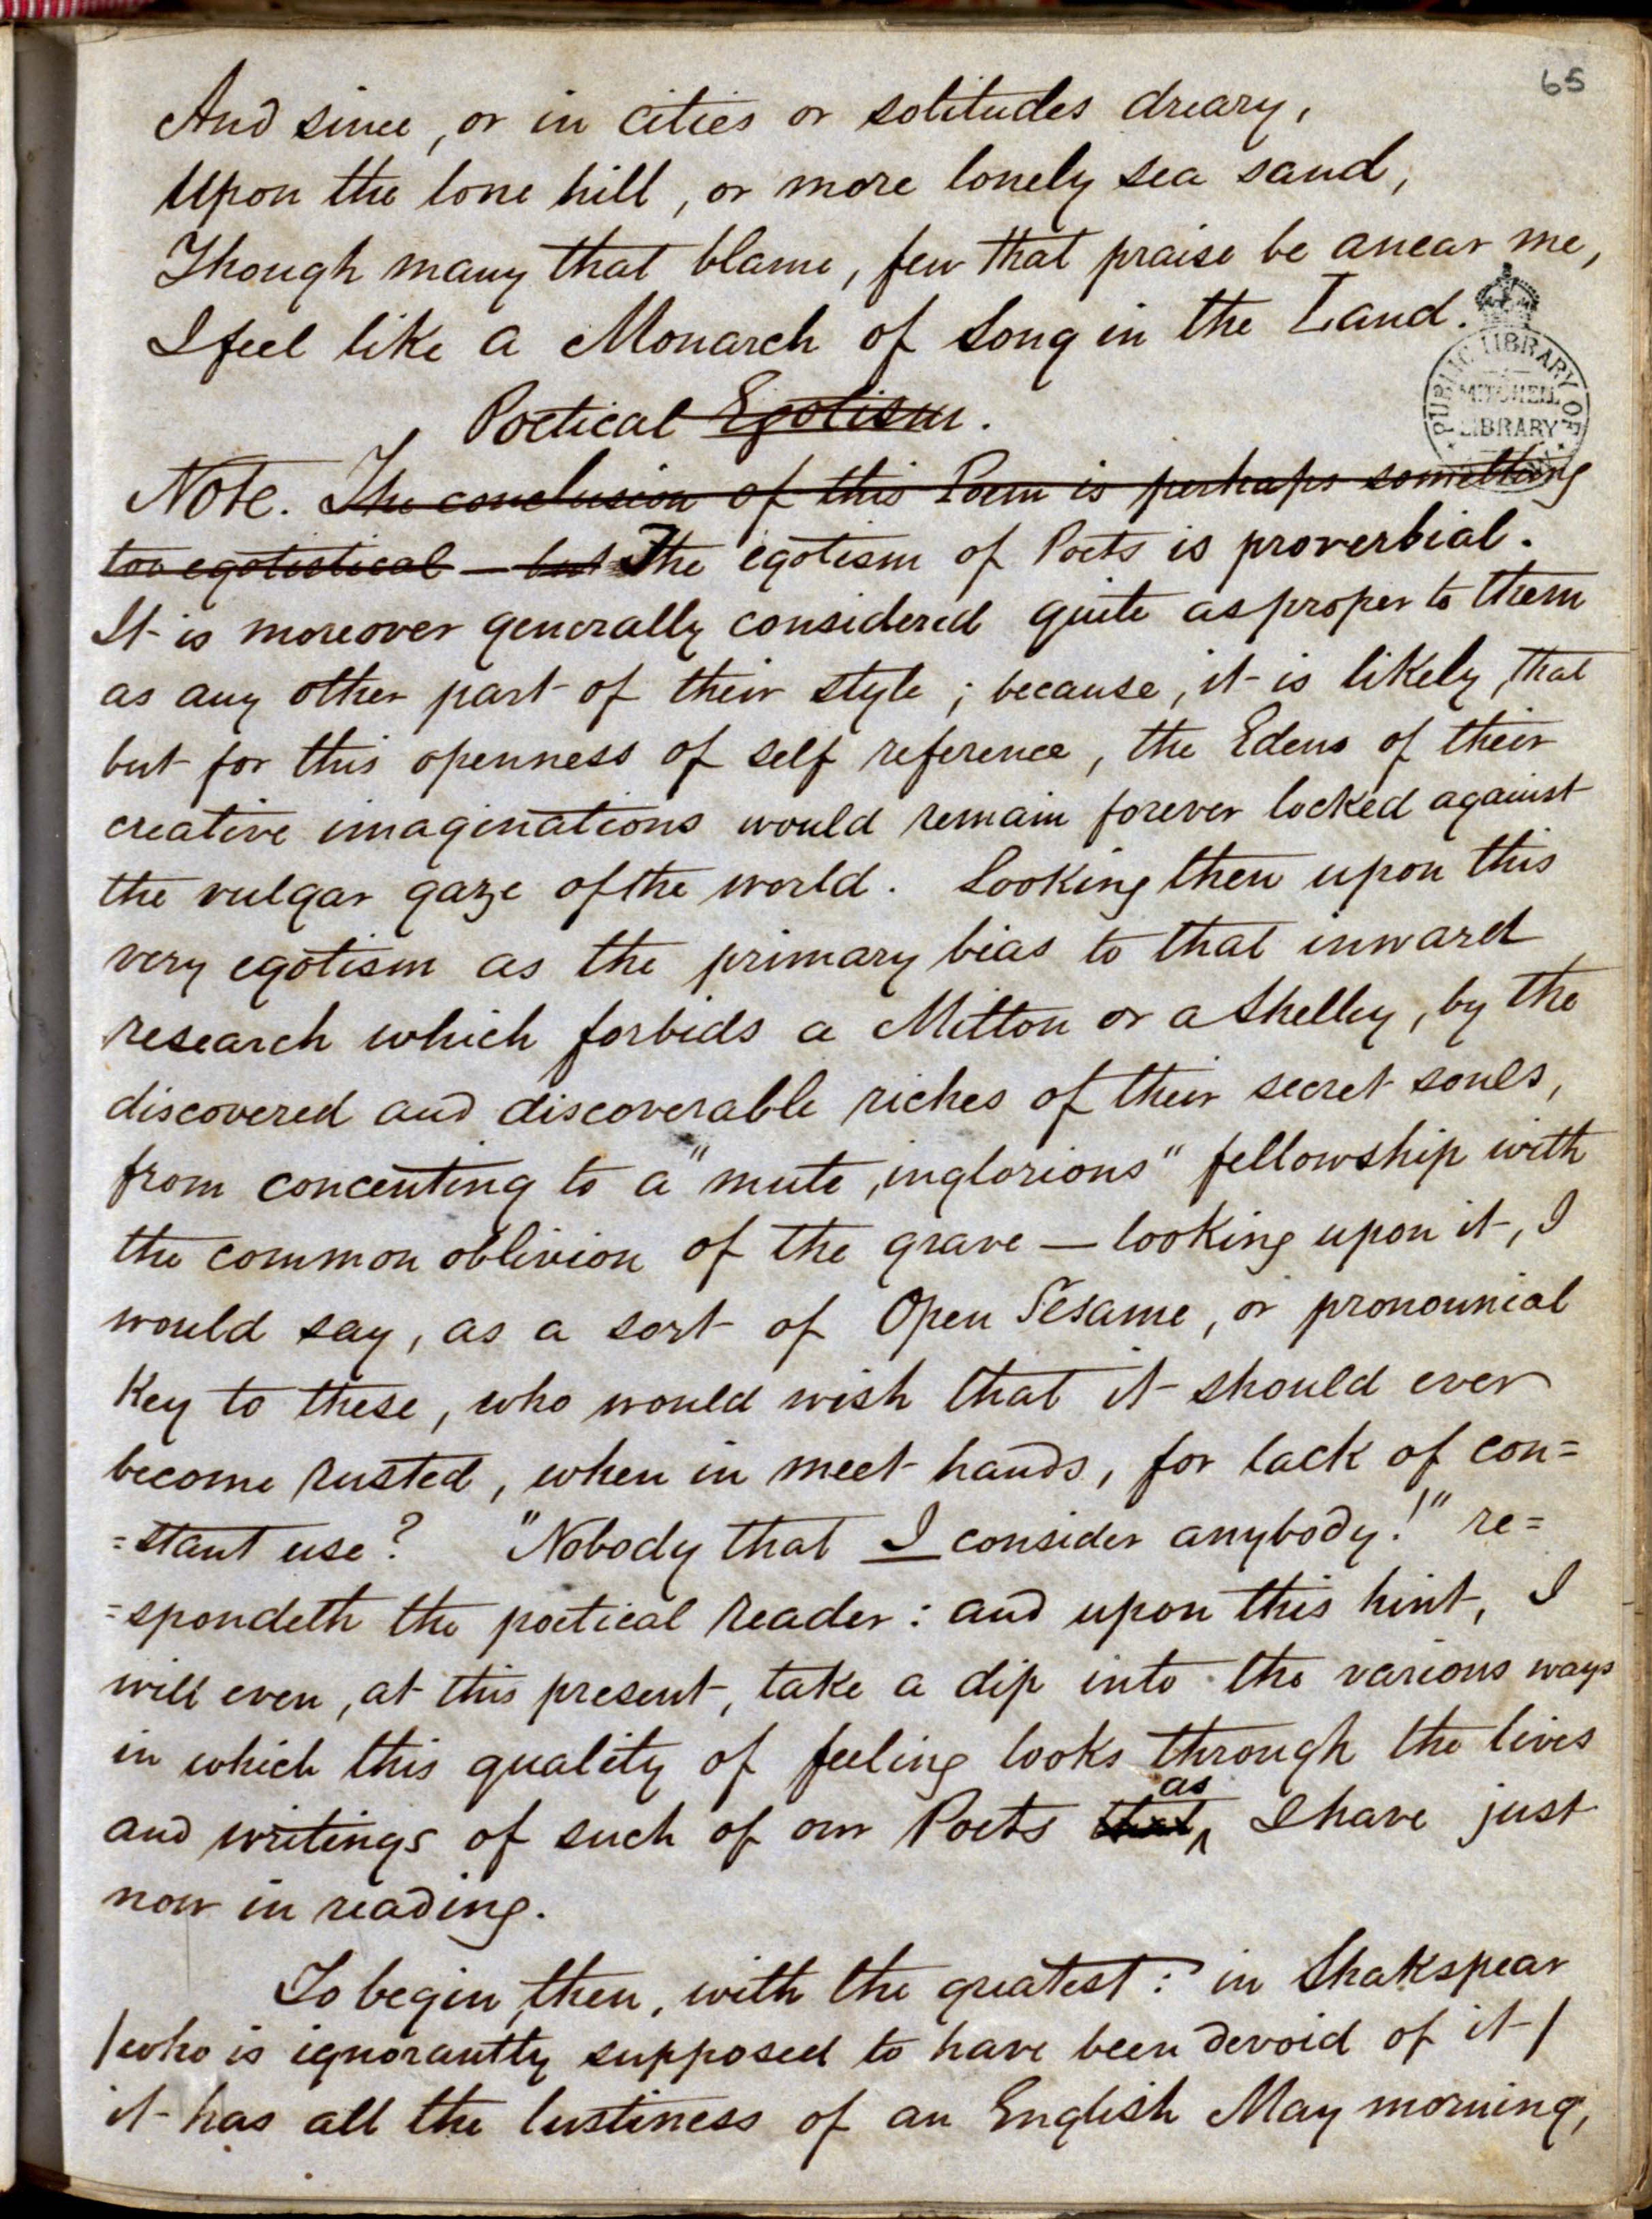 65
And since, or in cities or solitudes dreary,
Upon the lone hill, or more lonely sea sand,
Though many that blame, few that praise be anear me,
I feel like a Monarch of Song in the Land.
PUBLIC LIBRARY OF
MITCHELL
LIBRARY
Poetical Egotism.
Note. The conclusion of this Poem is perhaps something
too egotistical — but The egotism of Poets is proverbial.
It is moreover generally considered quite as proper to them
as any other part of their style; because, it is likely, that
but for this openness of self reference, the Edens of their
creative imaginations would remain forever locked against
the vulgar gaze of the world. Looking then upon this
very egotism as the primary bias to that inward
research which forbids a Milton or a Shelley, by the
discovered and discoverable riches of their secret souls,
from concenting to a "mute, inglorious" fellowship with
the common oblivion of the grave — looking upon it, I
would say, as a sort of Open Sesame, or pronounial
Key to these, who would wish that it should ever
become rusted, when in meet hands, for lack of con=
=stant use? "Nobody that I consider anybody!" re=
=spondeth the poetical reader: and upon this hint, I
will even, at this present, take a dip into the various ways
in which this quality of feeling looks through the lives
as
and writings of such of our Poets that ^ I have just
now in reading.
To begin, then, with the greatest: in Shakspear
/who is ignorantly supposed to have been devoid of it/
it has all the lustiness of an English May morning,